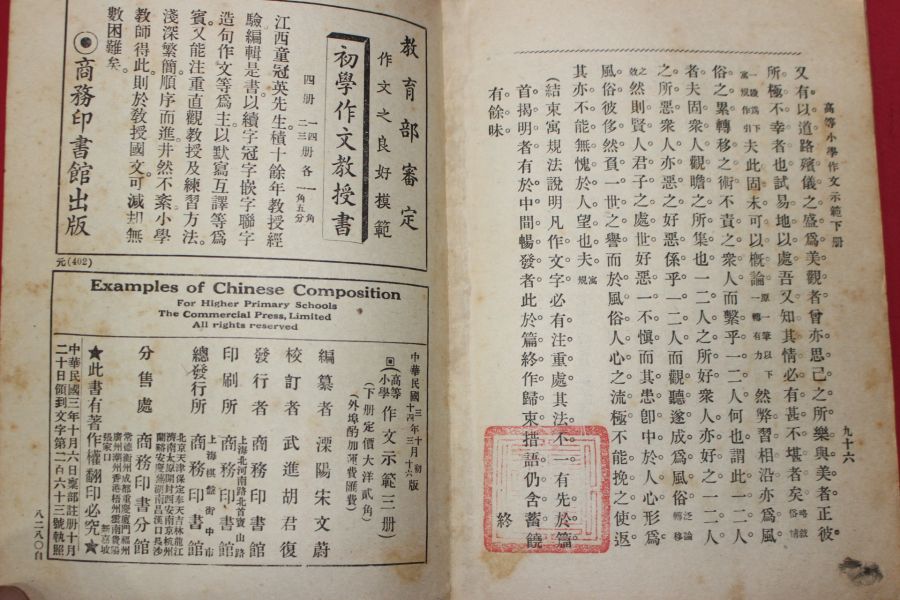 高等小學作文示範下册
九十六
又有以道路殯儀之盛爲美觀者曾亦思己之所樂與美者正彼
所極不幸者也試易地以處吾又知其情必有甚不堪者矣
夫此固未可以概論
然弊習相沿亦爲風
俗之累轉移之術不責之衆人而繫乎一二人何也謂此一二人
者夫固衆人觀瞻之所集也一二人之所好衆人亦好之一二人
之所惡衆人亦惡之好惡係乎一二人而觀聽遂成爲風俗
然則賢人君子之處世好惡一不愼而其患卽中於人心形爲
風俗彼侈然負一世之譽而於風俗人心之流極不能挽之使返
其亦不能無愧於人望也夫
(結束寓規法說明凡作文字必有注重處其法不一有先於篇
首揭明者有於中間暢發者此於篇終作歸束措語仍含蓄饒
有餘味
終
教育部審定
作文之良好模範
初學作文教授書
四册 一四册各一角 二三册各一角五分
江西童冠英先生積十餘年教授經
驗編輯是書以續字冠字嵌字聯字
造句作文等爲主以默寫互譯等爲
賓又能注重直觀教授及練習方法
淺深繁簡順序而進井然不紊小學
教師得此則於敎授國文可減却無
數困難矣
商務印書館出版
元(402)
Examples of Chinese Composition
For Higher Primary Schools
The Commercial Press, Limited
All rights reserved
高等小學 作文示範三册
(下册定價大洋貳角)
(外埠酌加運費匯費)
編纂者 溧陽宋文蔚
校訂者 武進胡君復
發行者 商務印書館
上海北河南路北首寶山路
印刷所 商務印書館
上海棋盤街中市
總發行所 商務印書館
分售處 商務印書分館
★此書有著作權翻印必究★
中華民國三年十月六日稟部註册十月
二十日領到文字第二百六十三號執照
八二八〇自